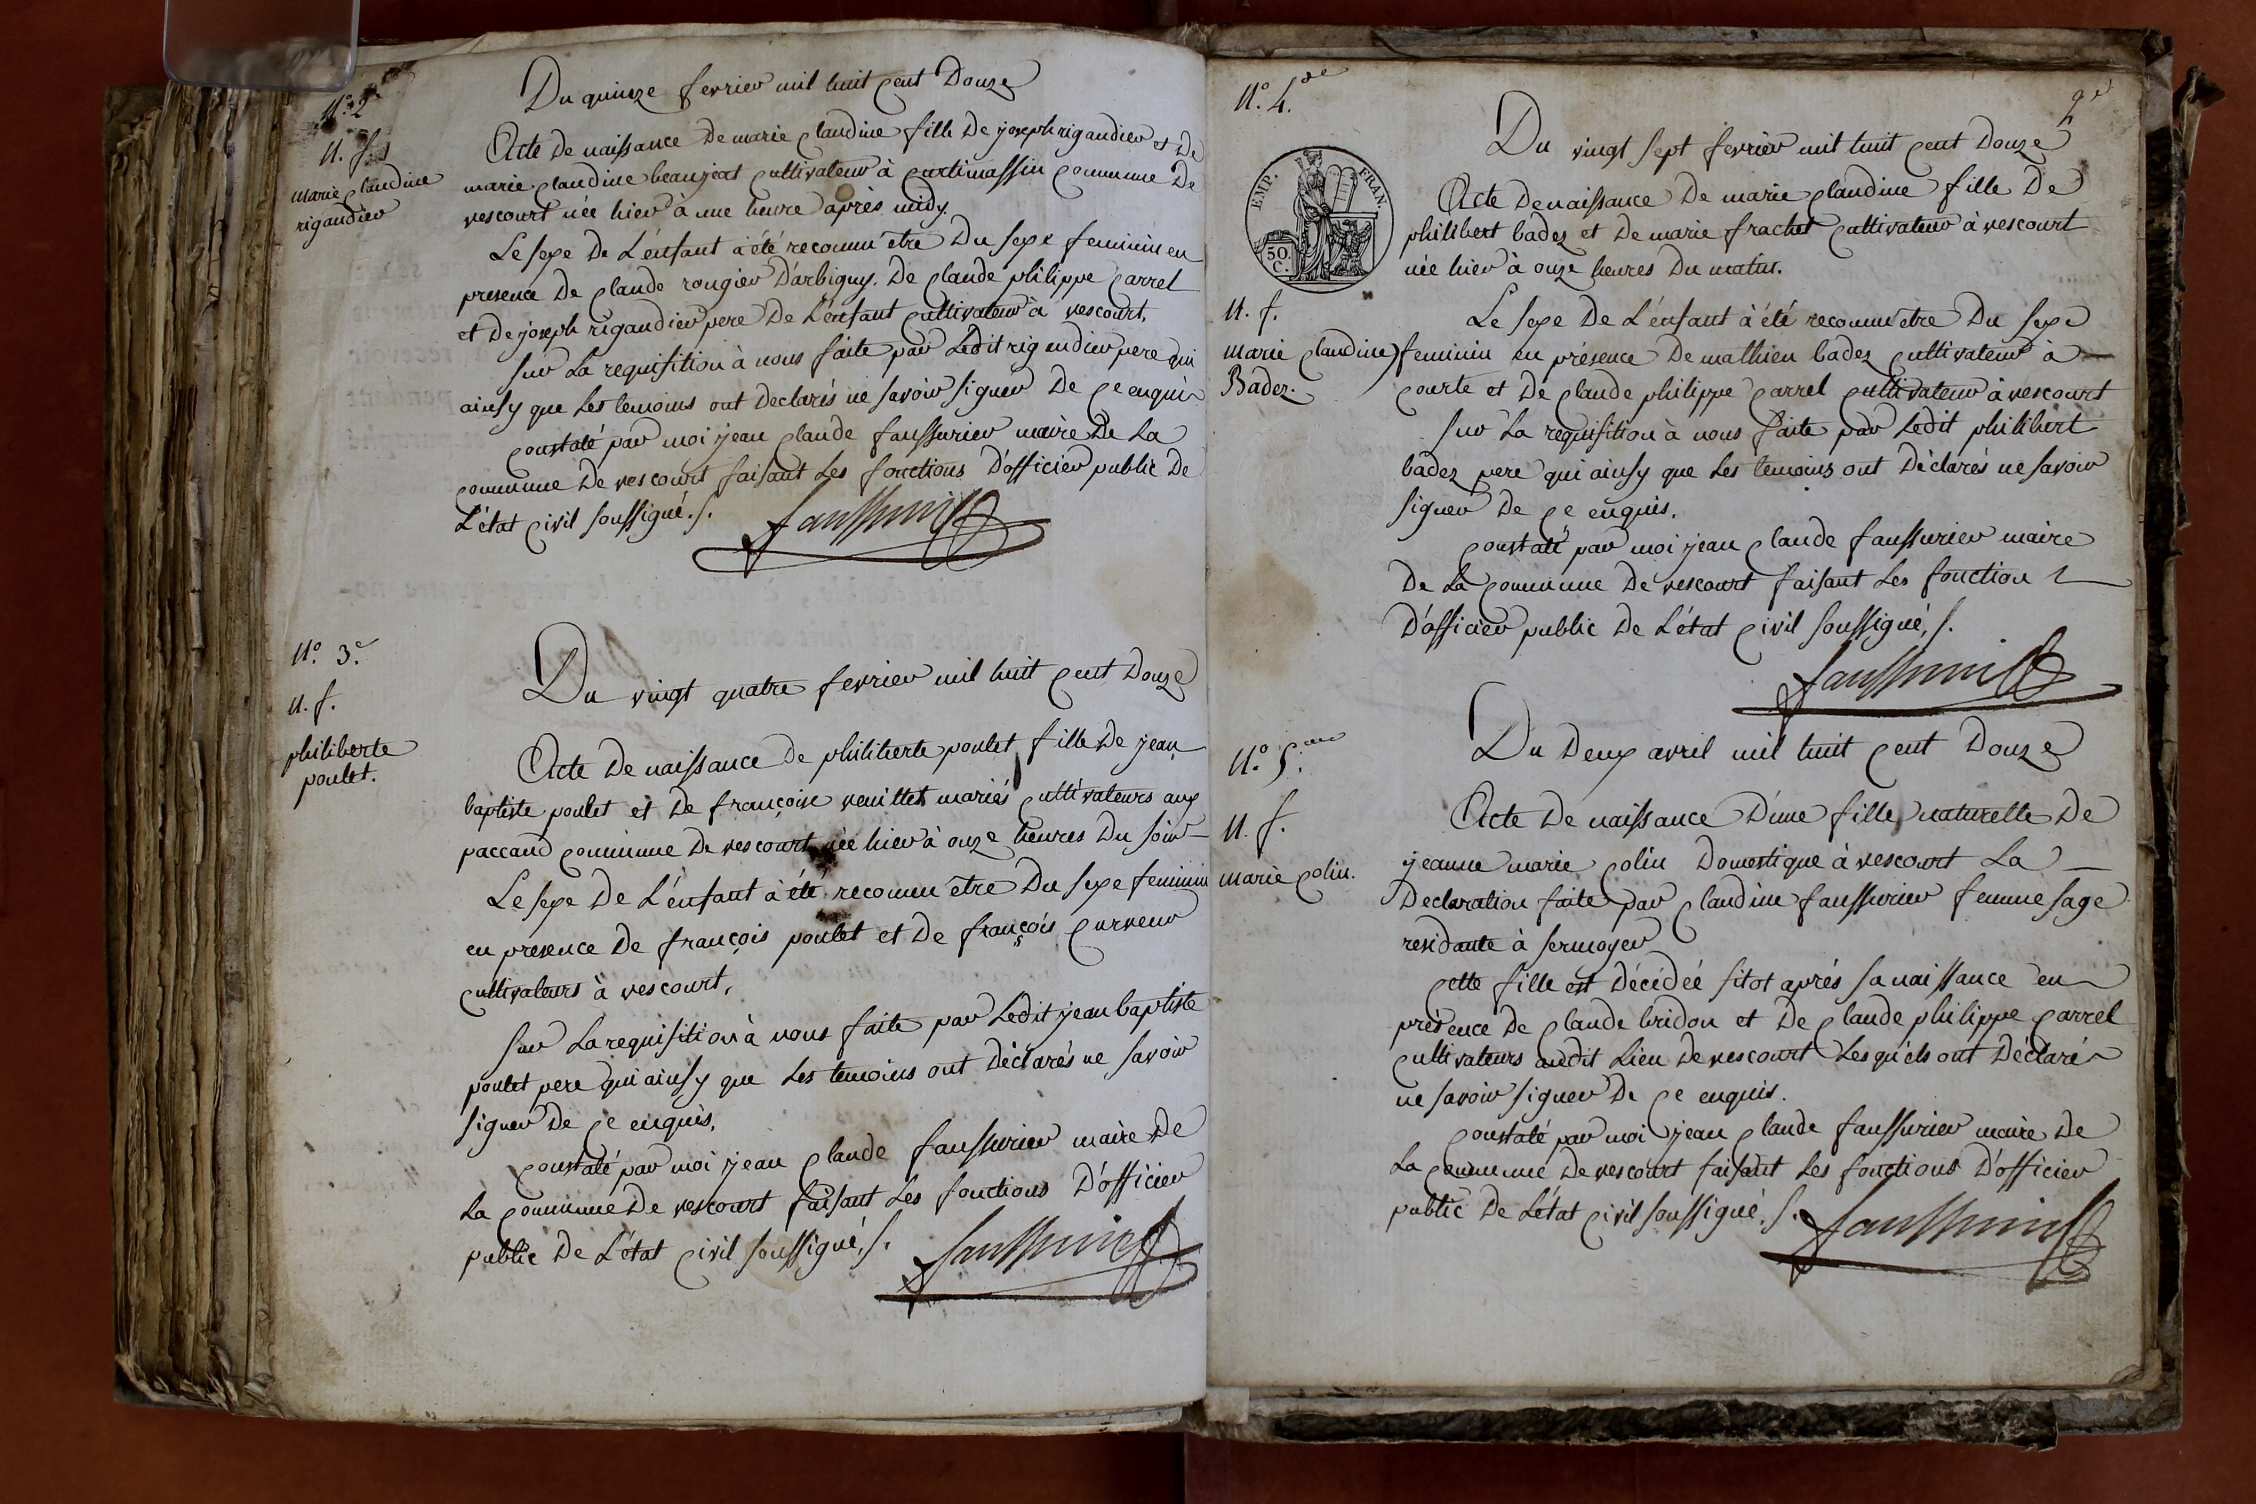 N.° 2.e
N. f.
marie claudine
rigaudier
Du quinze fevrier mil huit cent Douze
Acte De naissance De marie claudine fille De joseph rigaudier et De
marie claudine beaujeat cultivateur à curtimassin commune De
vescourt née hier à une heure après midy.
Le sexe De L'énfant à été reconnu être Du sexe feminin en
presence De claude rougier D'arbigny. De claude philippe carrel
et De joseph rigaudier pere De L'énfant cultivateur à vescourt,
sur La requisition à nous faite par Ledit rigaudier pere qui
ainsy que Les temoins ont Declarés ne savoir signer De ce enquis
constaté par moi jean claude faussurier maire De La
commune De vescourt faisant Les fonctions D'officier public De
L'état civil soussigné. s.
faussurier
N.° 3.e
N. f.
philiberte
poulet.
Du vingt quatre fevrier mil huit cent Douze
Acte De naissance De philiberte poulet fille De jean
baptiste poulet et De françoise veuillet mariés cultivateurs aux
paccaud commune De vescourt née hier à onze heures Du soir
Le sexe De L'énfant à été reconnu être Du sexe feminin
en presence De françois poulet et De françois curveur
cultivateurs à vescourt,
sur La requisition à nous faite par Ledit jean baptiste
poulet pere qui ainsy que Les temoins ont Déclarés ne savoir
signer De ce enquis,
constaté par moi jean claude faussurier maire De
La commune De vescourt faisant Les fonctions D'officier
public De L'état civil soussigné, s.
faussurier
N.° 4.
9e
EMP. FRAN.
50.
C.
N. f.
marie claudine
Badez.
Du vingt sept fevrier mil huit cent Douze
Acte De naissance De marie claudine fille De
philibert badez et De marie frachet cultivateur à vescourt
née hier à onze heures Du matin.
Le sexe De L'énfant à été reconnu etre Du sexe
feminin en présence De mathieu badez cultivateur à
courte et De claude philippe carrel cultivateur à vescourt
sur La requisition à nous faite par Ledit philibert
badez pere qui ainsy que Les temoins ont Déclarés ne savoir
signer De ce enquis.
constaté par moi jean claude faussurier maire
De La commune De vescourt faisant Les fonction
D'officier public De L'état civil soussigné, s.
faussurier
N.° 5.me
N. f.
marie colin.
Du Deux avril mil huit cent Douze
Acte De naissance D'une fille naturelle De
jeanne marie colin Domestique à vescourt La
Declaration faite par claudine faussurier femme sage
residante à sermoyer
cette fille est décédéé sitot après sa naissance en
présence De claude bridon et De claude philippe carrel
cultivateurs audit Lieu De vescourt Lesquels ont Déclaré
ne savoir signer De ce enquis.
constaté par moi jean claude faussurier maire De
La commune De vescourt faisant Les fonctions D'officier
public De L'état civil soussigné. s.
faussurier